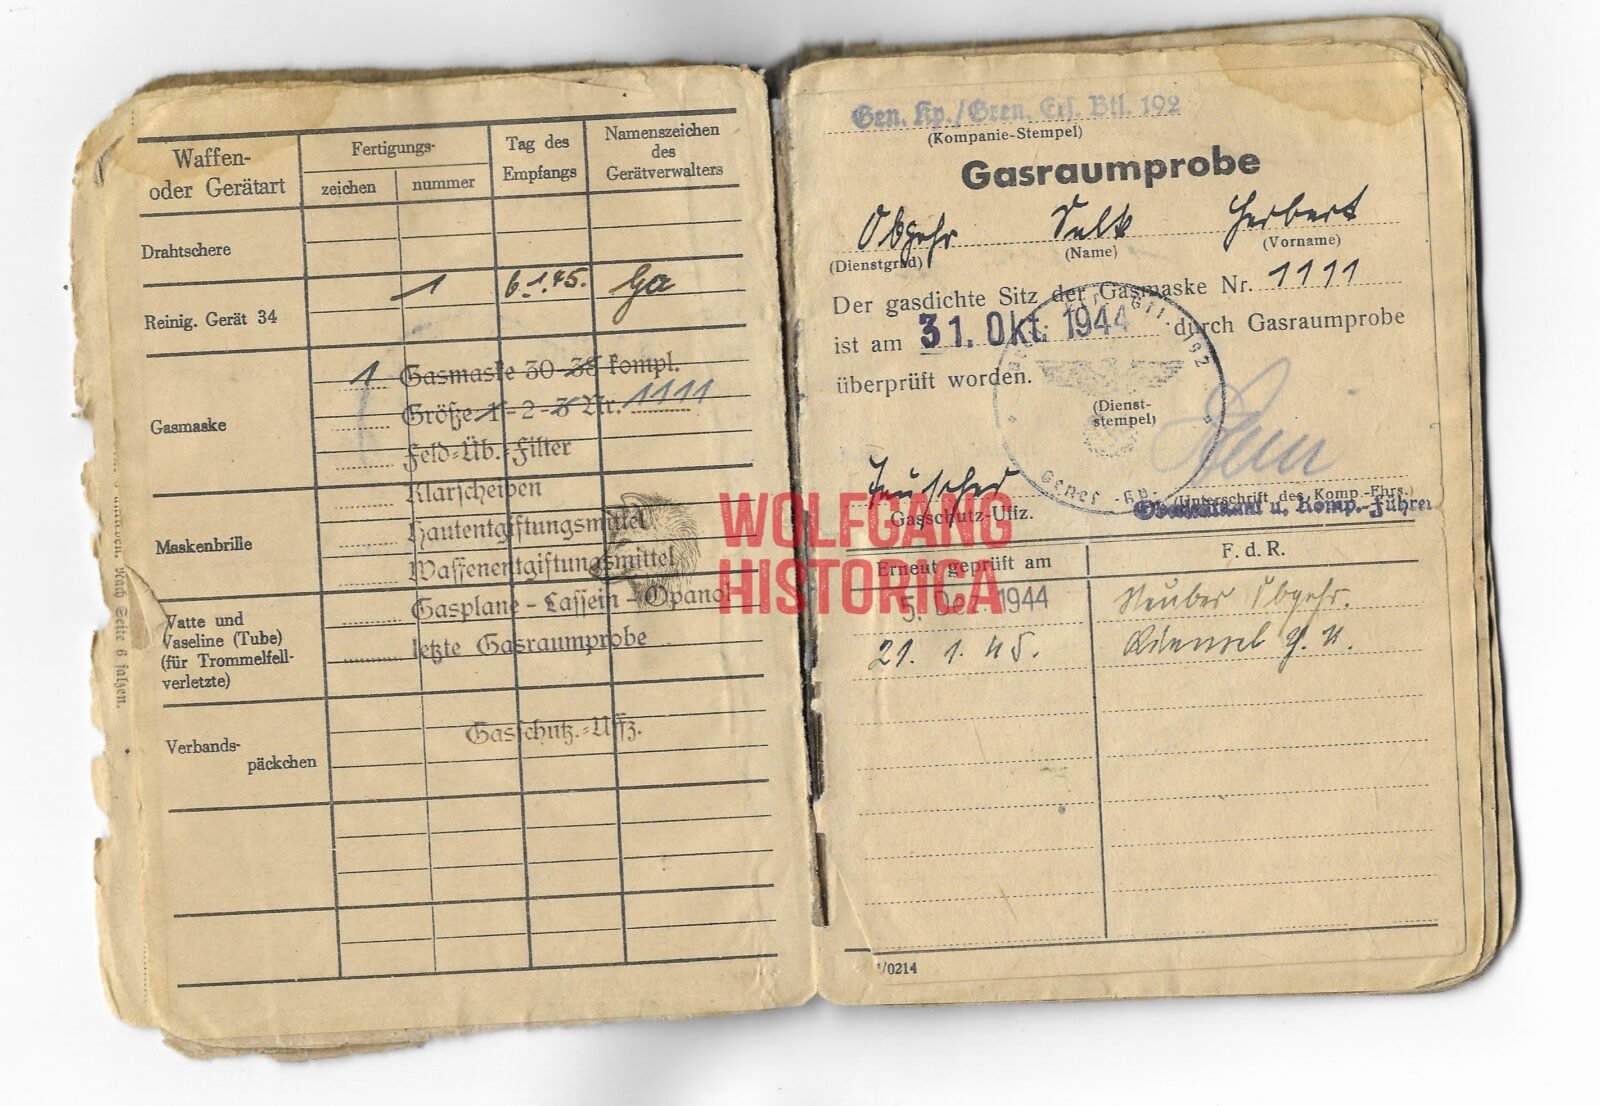 Waffen-
oder Gerätart
Fertigungs-
zeichen
nummer
Tag des
Empfangs
Namenszeichen
des
Gerätverwalters
Drahtschere
Reinig. Gerät 34
1 6.1.45. Ga
Gasmaske
1 Gasmaske 30-38 kompl.
Größe 1-2-3 Nr. 1111
Feld-Üb.-Filter
Klarscheiben
Maskenbrille
Hautentgiftungsmittel
Waffenentgiftungsmittel
Gasplane - Lassein - Opanol
letzte Gasraumprobe
Watte und
Vaseline (Tube)
(für Trommelfell-
verletzte)
Verbands-
päckchen
Gasschutz.-Uffz.
Nach Seite 6 falzen.
Gen. Kp./Gren. Ers. Btl. 192
(Kompanie-Stempel)
Gasraumprobe
Obgefr Selk Herbert
(Dienstgrad) (Name) (Vorname)
Der gasdichte Sitz der Gasmaske Nr. 1111
ist am 31. Okt. 1944 durch Gasraumprobe
überprüft worden.
(Dienst-
stempel)
Genes.-Kp.
Gasschutz-Uffz.
(Unterschrift des Komp.-Fhrs.)
u. Komp.-Führer
Erneut geprüft am
F. d. R.
5. Dez. 1944 Obgefr.
21. 1. 45.
1/0214
WOLFGANG
HISTORICA